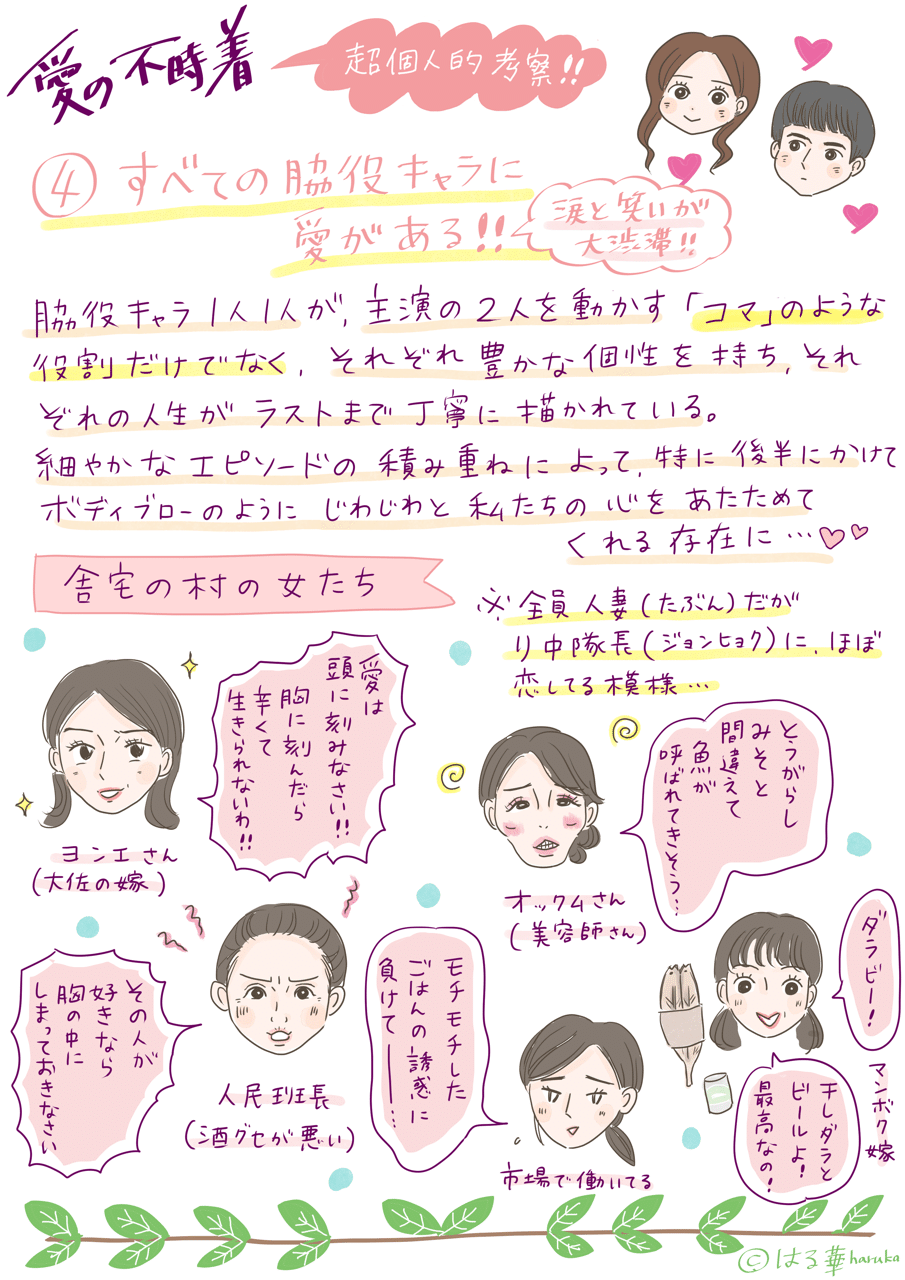 愛の不時着
超個人的考察!!
④ すべての脇役キャラに
愛がある!!
涙と笑いが
大渋滞!!
脇役キャラ1人1人が、主演の2人を動かす「コマ」のような
役割だけでなく、それぞれ豊かな個性を持ち、それ
ぞれの人生がラストまで丁寧に描かれている。
細やかなエピソードの積み重ねによって、特に後半にかけて
ボディブローのようにじわじわと私たちの心をあたためて
くれる存在に…♡♡
舎宅の村の女たち
※全員人妻(たぶん)だが
リ中隊長(ジョンヒョク)に、ほぼ
恋してる模様…
愛は
頭に刻みなさい!!
胸に刻んだら
辛くて
生きられないわ!!
ヨンエさん
(大佐の嫁)
とうがらし
みそと
間違えて
魚が
呼ばれてきそう…
オックムさん
(美容師さん)
その人が
好きなら
胸の中に
しまっておきなさい
人民班長
(酒グセが悪い)
モチモチした
ごはんの誘惑に
負けて――…
市場で働いてる
ダラビー!
干しダラと
ビールよ!
最高なの!
マンボク嫁
©はる華haruka